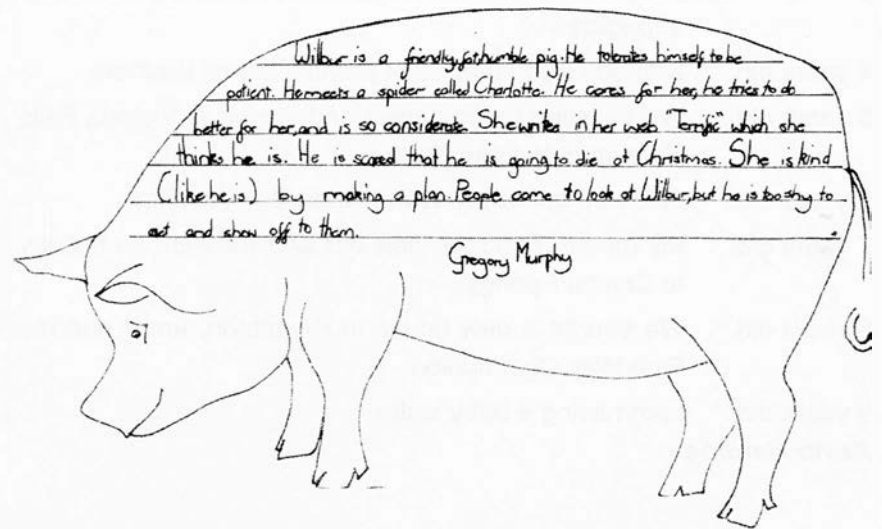 Wilbur is a friendly, fat, humble pig. He tolerates himself to be
patient. He meets a spider called Charlotte. He cares for her, he tries to do
better for her, and is so considerate. She writes in her web "Terrific" which she
thinks he is. He is scared that he is going to die at Christmas. She is kind
(like he is) by making a plan. People come to look at Wilbur, but he is too shy to
act and show off to them.
Gregory Murphy